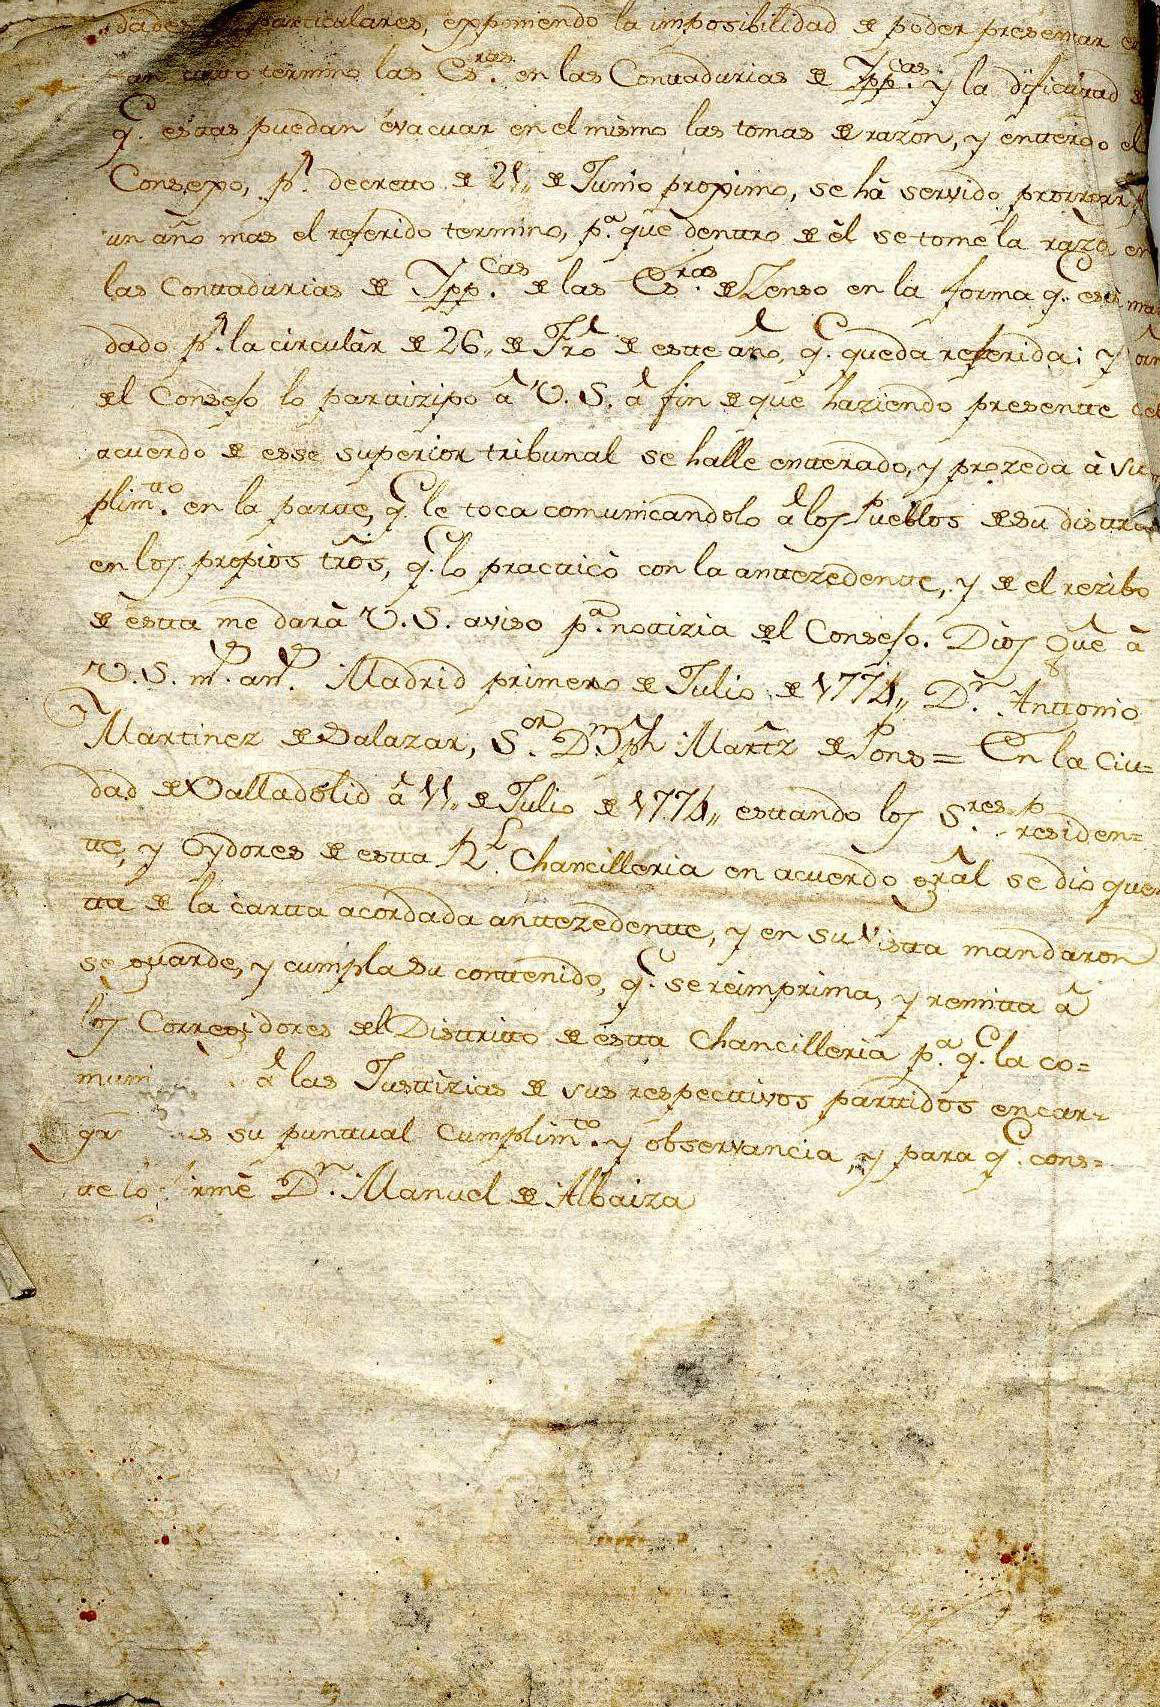 dades particulares, exponiendo la imposibilidad de poder presentar en
termino las Es.ras en las Contadurias de Ypp.cas y la dificultad de
q.e estas puedan evacuar en el mismo las tomas de razon, y entterado el
Consexo, p.r decretto de 21,, de Junio proximo, se hà servido prorrog
un año mas el referido termino, p.a que dentro de èl se tome la razo en
las Contadurias de Ypp.cas de las Es.ras de Zenso en la forma q.e està man
dado p.r la circulàr de 26,, de Fro de este año, q.e queda referida: y
del Consejo lo partizipo â V. S. â fin de que haziendo presente
acuerdo de esse superior tribunal se halle entterado, y prozeda à su
plim.tto en la parte, q.e le toca comunicandolo â los Pueblos de su distr
en los propios trños, q.e lo practicò con la antezedente, y de el rezibo
de esta me darà V. S. aviso p.a nottizia del Consejo. Dios gue à
V. S. m.s an.s Madrid primero de Julio de 1774,, D.n Anttonio
Martinez de Salazar, S.or D.n Jph Martz de Pons = En la Ciu=
dad de Valladolid â 11,, de Julio de 1774,, estando los S.res Presiden=
te, y Oydores de esta R.l Chancilleria en acuerdo gral se dio quen
ta de la carta acordada antezedente, y en su vista mandaron
se guarde, y cumpla su contenido, q.e se reimprima, y remita â
los Corregidores del Distritto de esta Chancilleria p.a q.e la co=
muni â las Justizias de sus respectivos partidos encar=
g su puntual cumplim.to y observancia, y para q.e cons=
te lo firmè D.n Manuel de Albaiza